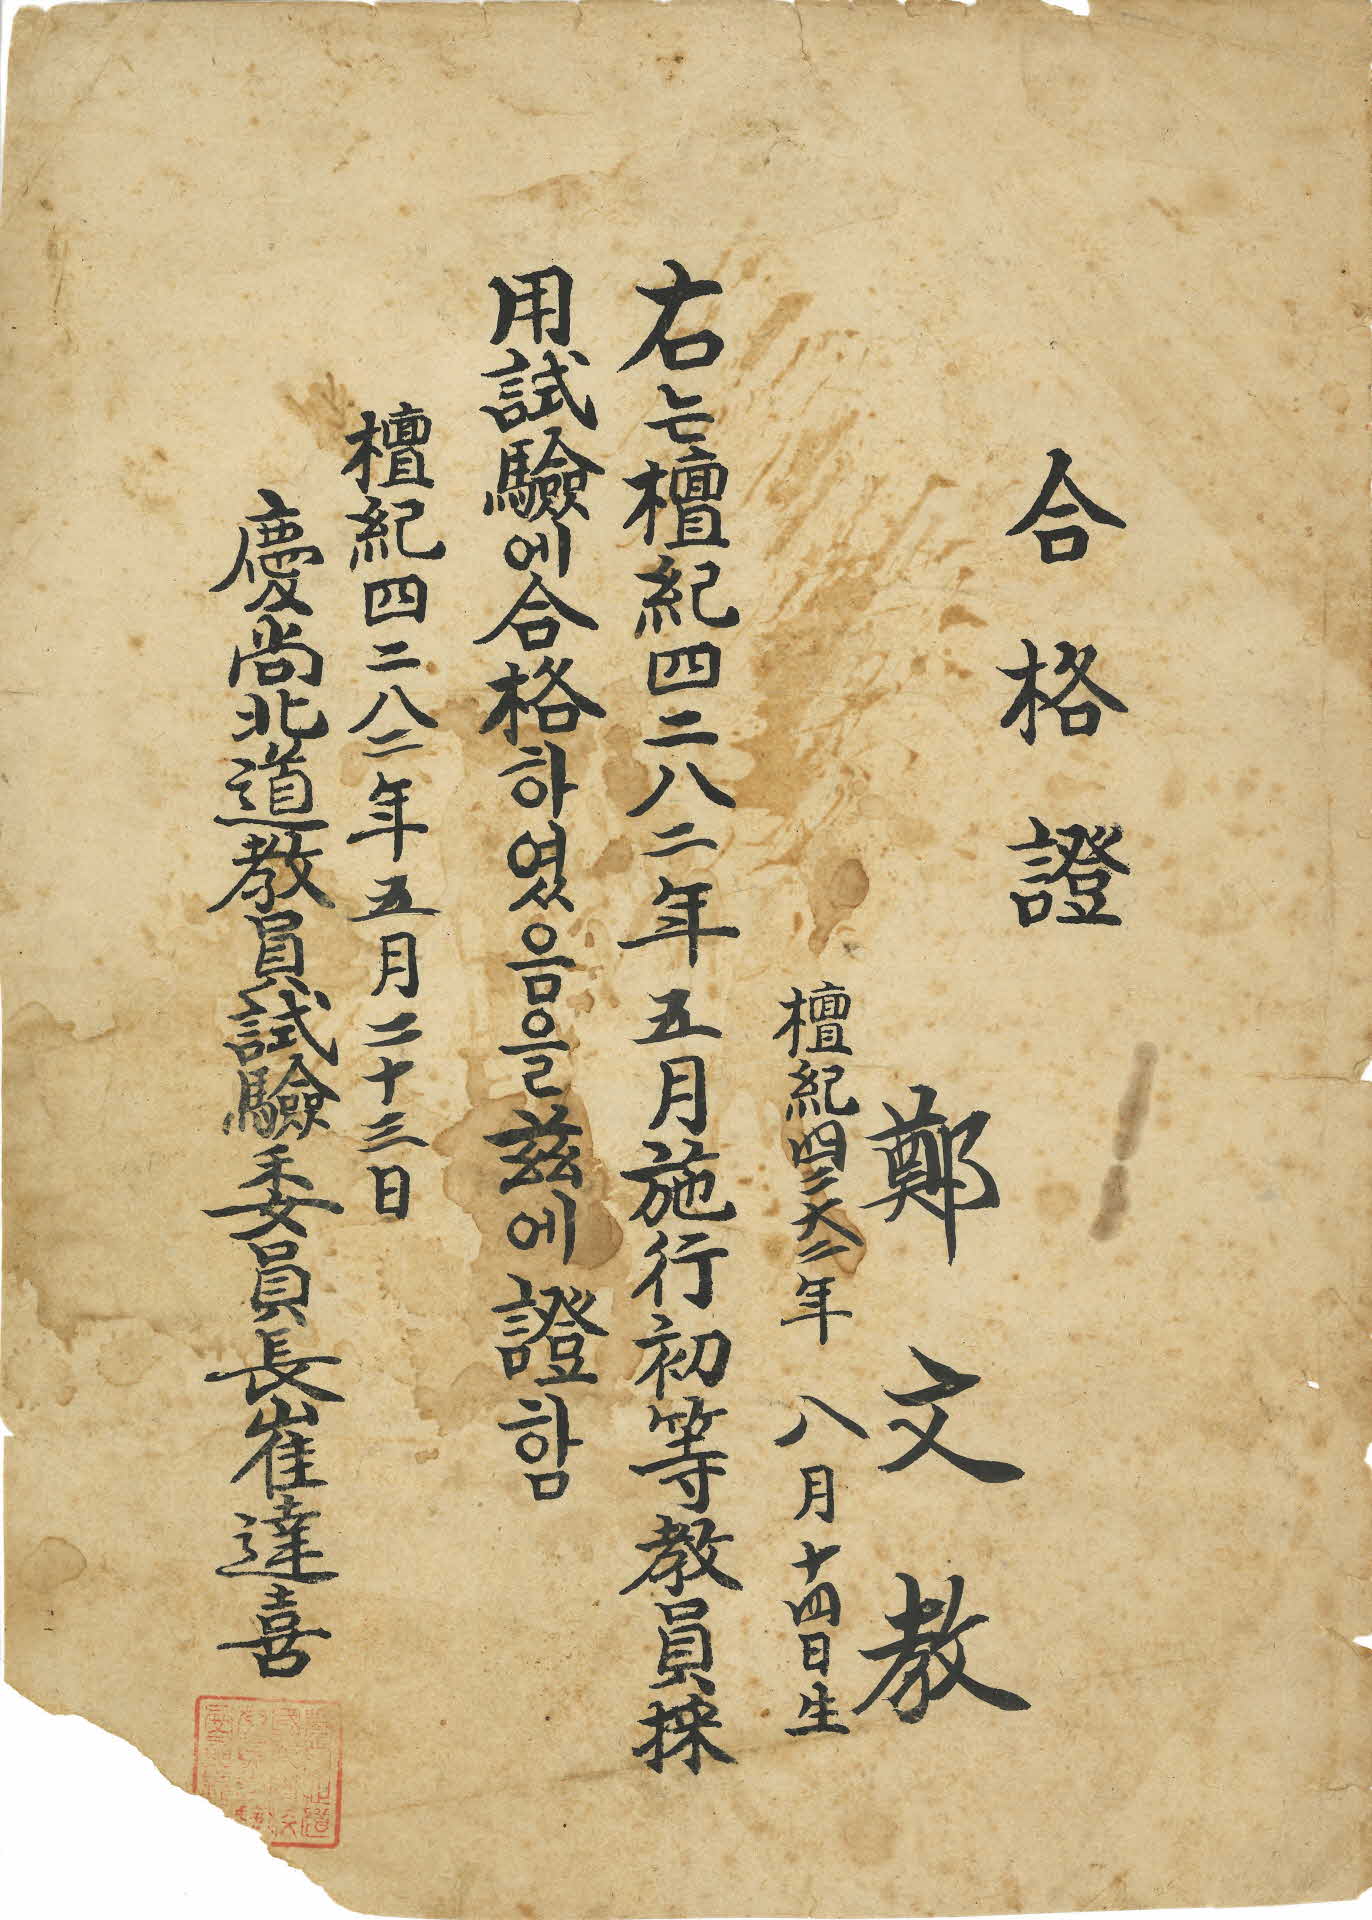 合格證
鄭文教
檀紀四二六二年 八月十四日生
右는檀紀四二八二年五月施行初等教員採
用試驗에合格하였음을玆에證함
檀紀四二八二年五月二十三日
慶尚北道教員試驗委員長崔達喜